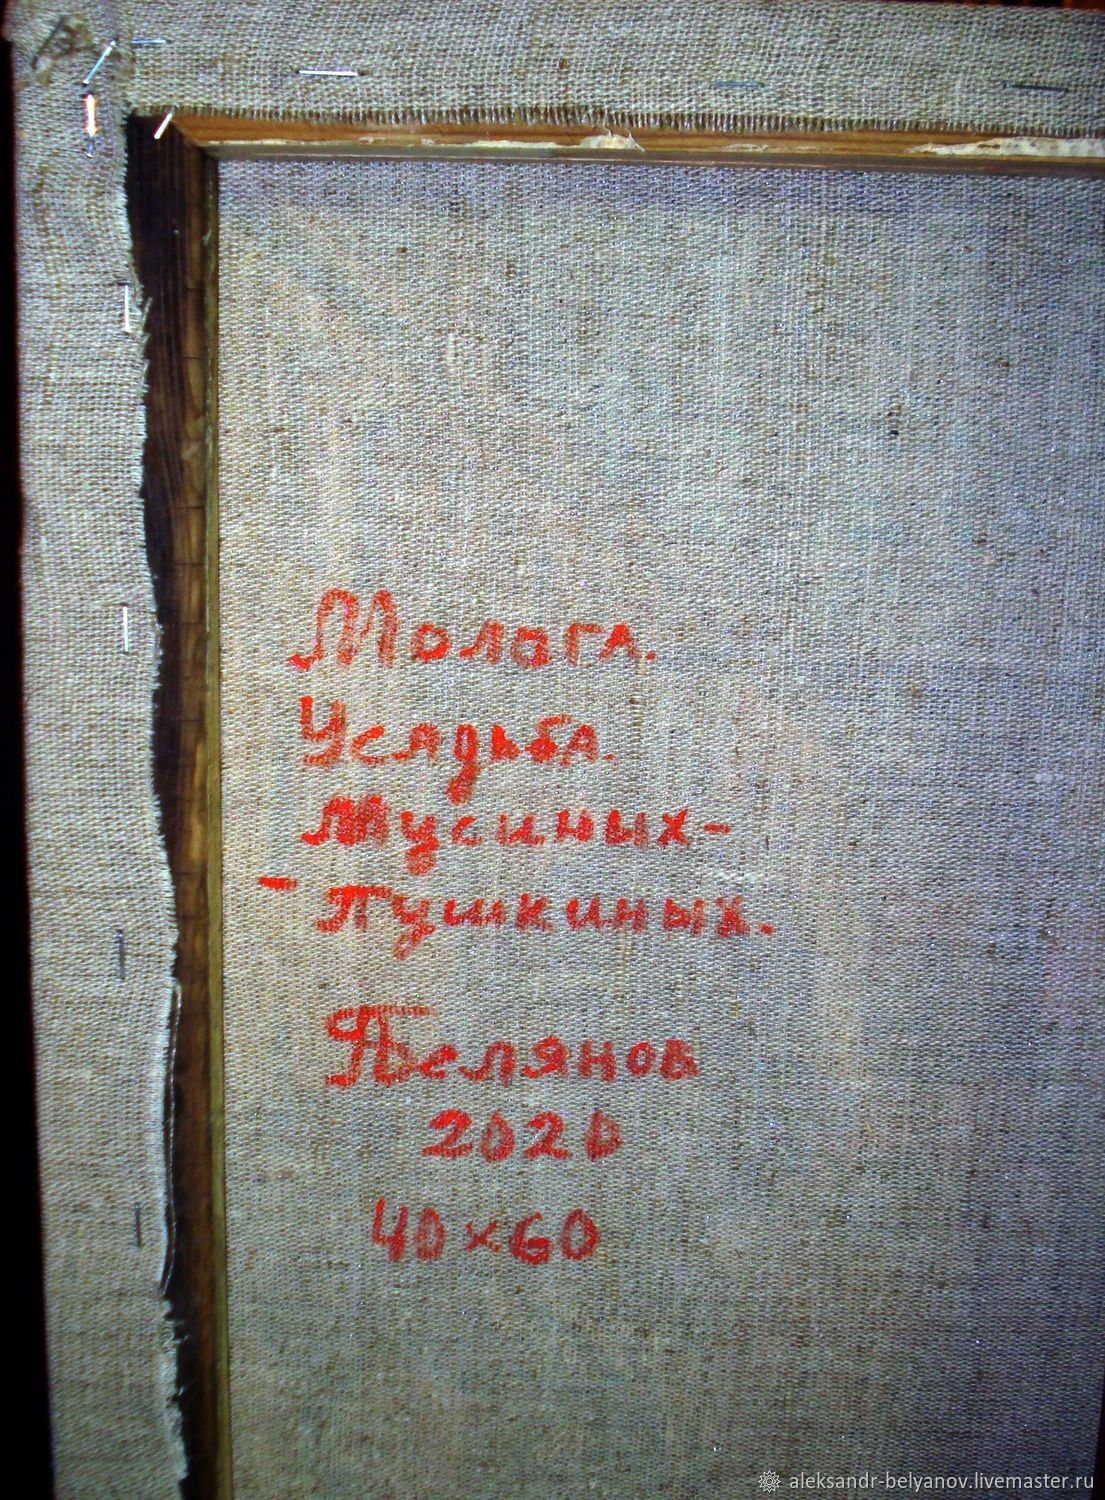 Молога.
Усадьба.
Мусиных-
-Пушкиных.
АБелянов
2020
40х60
aleksandr-belyanov.livemaster.ru